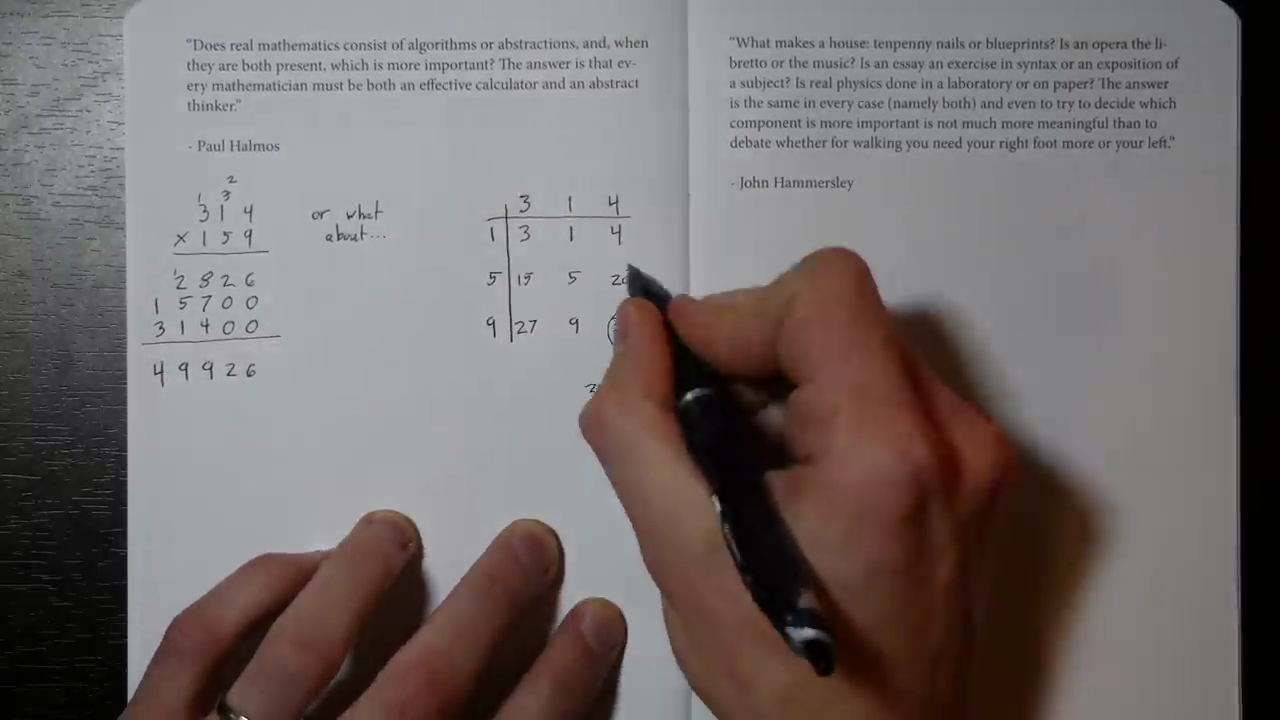 “Does real mathematics consist of algorithms or abstractions, and, when
they are both present, which is more important? The answer is that ev-
ery mathematician must be both an effective calculator and an abstract
thinker.”
- Paul Halmos
2
1 3
3 1 4
× 1 5 9
1
2 8 2 6
1 5 7 0 0
3 1 4 0 0
4 9 9 2 6
or what
about...
3 1 4
1 3 1 4
5 15 5
9 27 9
“What makes a house: tenpenny nails or blueprints? Is an opera the li-
bretto or the music? Is an essay an exercise in syntax or an exposition of
a subject? Is real physics done in a laboratory or on paper? The answer
is the same in every case (namely both) and even to try to decide which
component is more important is not much more meaningful than to
debate whether for walking you need your right foot more or your left.”
- John Hammersley